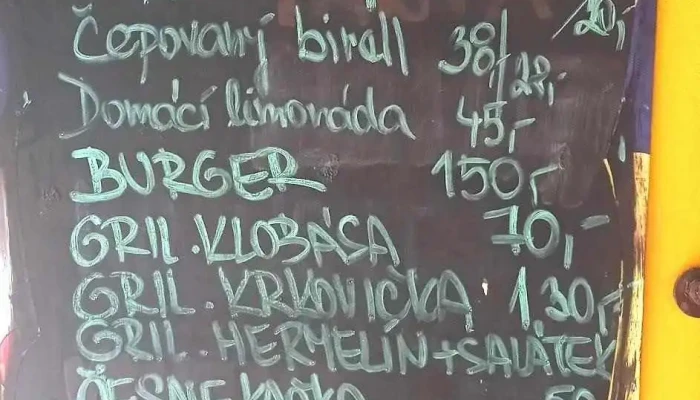 20,-
Čepovaný birell 38/28,-
Domácí limonáda 45,-
BURGER 150,-
GRIL. KLOBÁSA 70,-
GRIL. KRKOVIČKA 130,-
GRIL. HERMELÍN + SALÁTEK